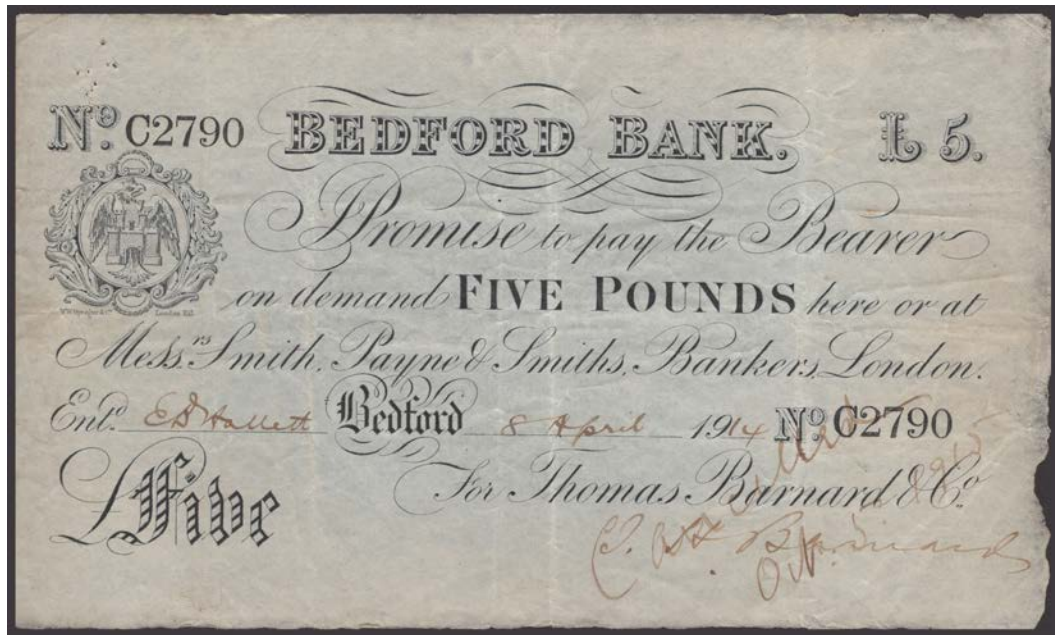 Nº C2790 BEDFORD BANK. £ 5.
I Promise to pay the Bearer
on demand FIVE POUNDS here or at
Messrs Smith, Payne & Smiths, Bankers, London.
Entd. Bedford 8 April 1914 Nº C2790
For Thomas Barnard & Co.
£ Five
Barnard